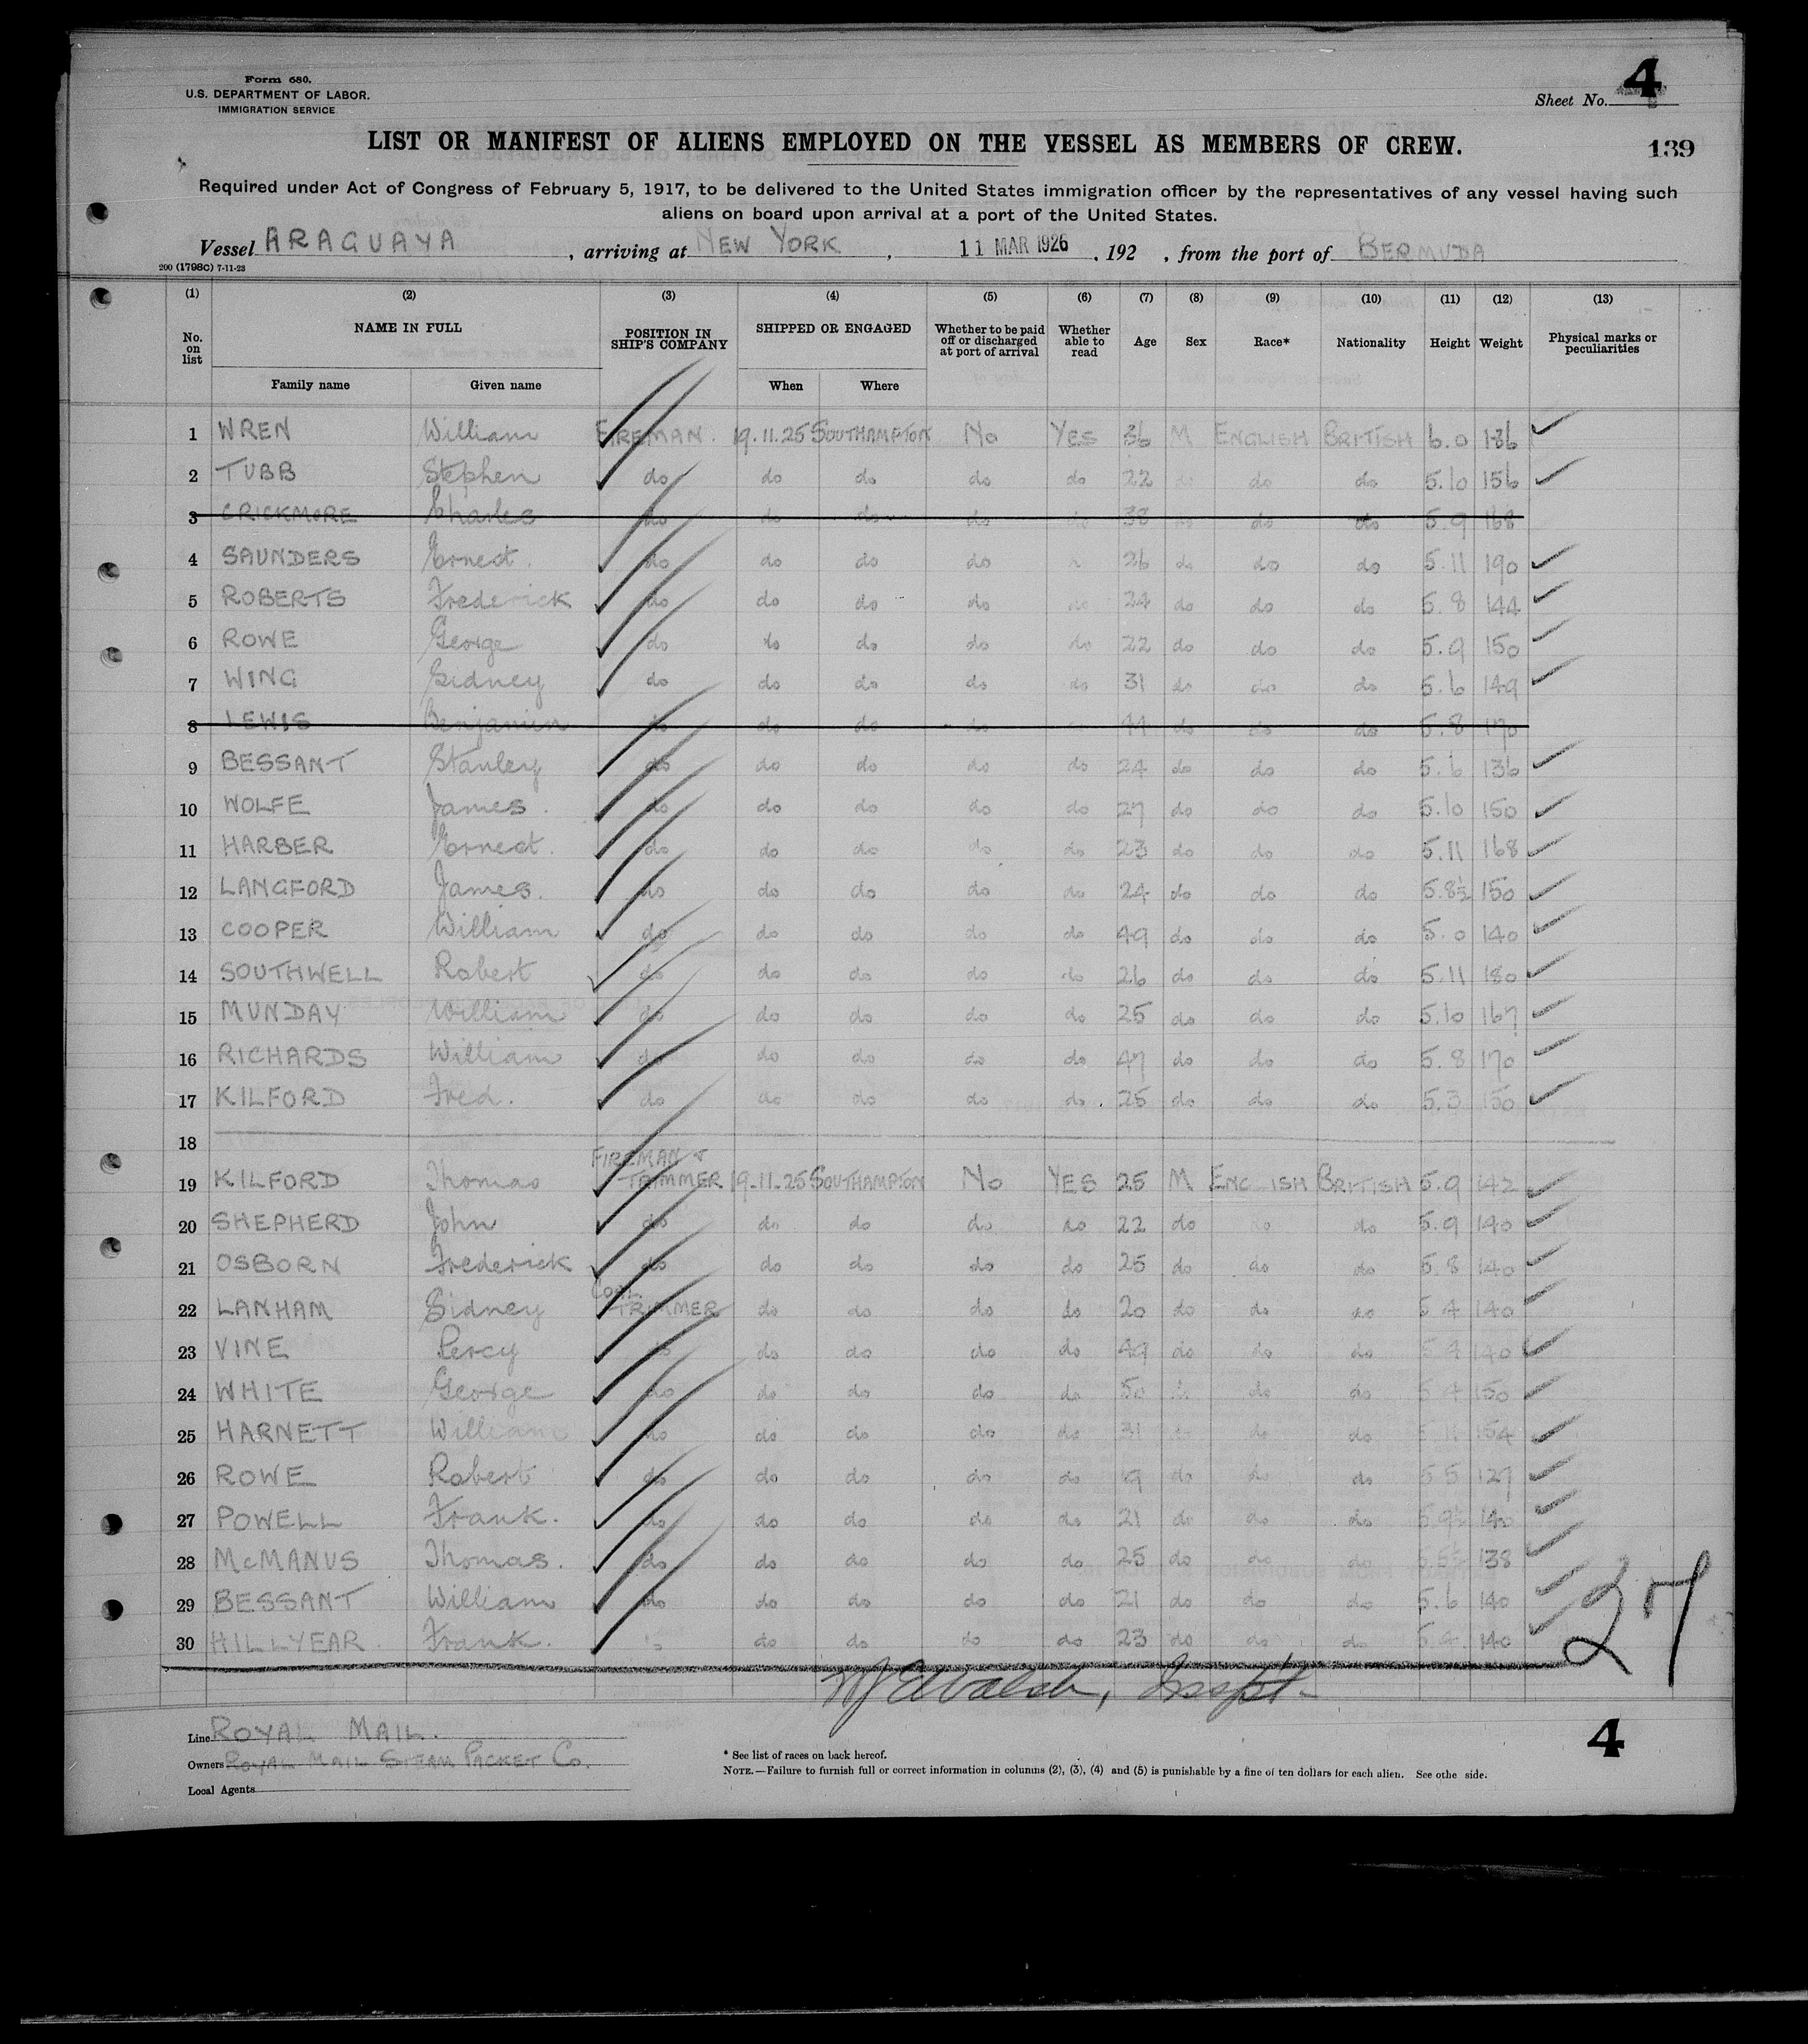 Form 680.
U.S. DEPARTMENT OF LABOR.
IMMIGRATION SERVICE
Sheet No. 4
LIST OR MANIFEST OF ALIENS EMPLOYED ON THE VESSEL AS MEMBERS OF CREW.
139
Required under Act of Congress of February 5, 1917, to be delivered to the United States immigration officer by the representatives of any vessel having such
aliens on board upon arrival at a port of the United States.
Vessel ARAGUAYA, arriving at NEW YORK, 11 MAR 1926, 192 , from the port of BERMUDA
200 (1798C) 7-11-23
(1) (2) (3) (4) (5) (6) (7) (8) (9) (10) (11) (12) (13)
No. on list NAME IN FULL POSITION IN SHIP'S COMPANY SHIPPED OR ENGAGED Whether to be paid off or discharged at port of arrival Whether able to read Age Sex Race* Nationality Height Weight Physical marks or peculiarities
Family name Given name When Where
1 WREN William FIREMAN. 19.11.25 SOUTHAMPTON No YES 36 M ENGLISH BRITISH 6.0 186
2 TUBB Stephen do do do do do 22 do do do 5.10 156
3 CRICKMORE Charles do do do do do 38 do do do 5.9 168
4 SAUNDERS Ernest. do do do do 26 do do do 5.11 190
5 ROBERTS Frederick do do do do do 24 do do do 5.8 144
6 ROWE George do do do do do 22 do do do 5.9 150
7 WING Sidney do do do do do 31 do do do 5.6 149
8 LEWIS Benjamin do do do do 44 do do do 5.8 170
9 BESSANT Stanley do do do do do 24 do do do 5.6 136
10 WOLFE James. do do do do do 27 do do do 5.10 150
11 HARBER Ernest. do do do do do 23 do do do 5.11 168
12 LANGFORD James. do do do do do 24 do do do 5.8½ 150
13 COOPER William do do do do do 49 do do do 5.0 140
14 SOUTHWELL Robert do do do do do 26 do do do 5.11 180
15 MUNDAY William do do do do do 25 do do do 5.10 167
16 RICHARDS William do do do do do 47 do do do 5.8 170
17 KILFORD Fred. do do do do do 25 do do do 5.3 150
18
19 KILFORD Thomas FIREMAN & TRIMMER 19-11-25 SOUTHAMPTON No YES 25 M ENGLISH BRITISH 5.9 142
20 SHEPHERD John do do do do do 22 do do do 5.9 140
21 OSBORN Frederick do do do do do 25 do do do 5.8 140
22 LANHAM Sidney COAL TRIMMER do do do do 20 do do do 5.4 140
23 VINE Percy do do do do do 49 do do do 5.4 140
24 WHITE George do do do do do 50 do do do 5.4 150
25 HARNETT William do do do do do 31 do do do 5.11 154
26 ROWE Robert do do do do do 19 do do do 5.5 127
27 POWELL Frank. do do do do do 21 do do do 5.9½ 140
28 McMANUS Thomas. do do do do do 25 do do do 5.5½ 138
29 BESSANT William do do do do do 21 do do do 5.6 140
30 HILLYEAR Frank. do do do do 23 do do do 5.4 140
27
Walsh, Inspt.
Line ROYAL MAIL.
Owners ROYAL MAIL STEAM PACKET Co.
Local Agents
* See list of races on back hereof.
NOTE.—Failure to furnish full or correct information in columns (2), (3), (4) and (5) is punishable by a fine of ten dollars for each alien. See othe side.
4